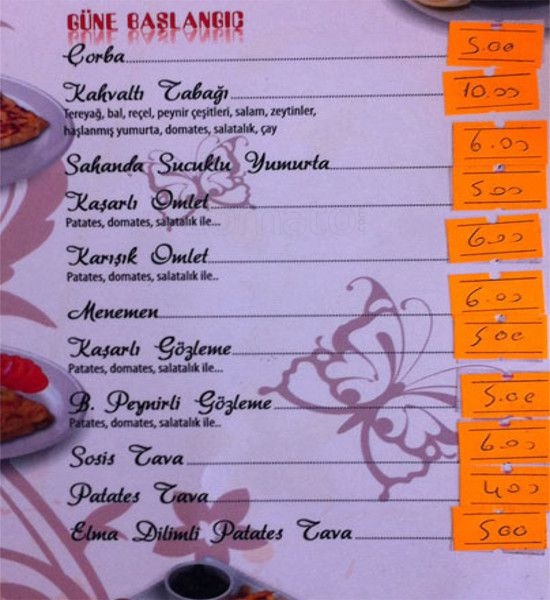 GÜNE BAŞLANGIÇ
Çorba 5.00
Kahvaltı Tabağı 10.00
Tereyağ, bal, reçel, peynir çeşitleri, salam, zeytinler,
haşlanmış yumurta, domates, salatalık, çay
Sahanda Sucuklu Yumurta 6.00
Kaşarlı Omlet 5.00
Patates, domates, salatalık ile...
Karışık Omlet 6.00
Patates, domates, salatalık ile..
Menemen 6.00
Kaşarlı Gözleme 5.00
Patates, domates, salatalık ile...
B. Peynirli Gözleme 5.00
Patates, domates, salatalık ile..
Sosis Tava 6.00
Patates Tava 4.00
Elma Dilimli Patates Tava 5.00